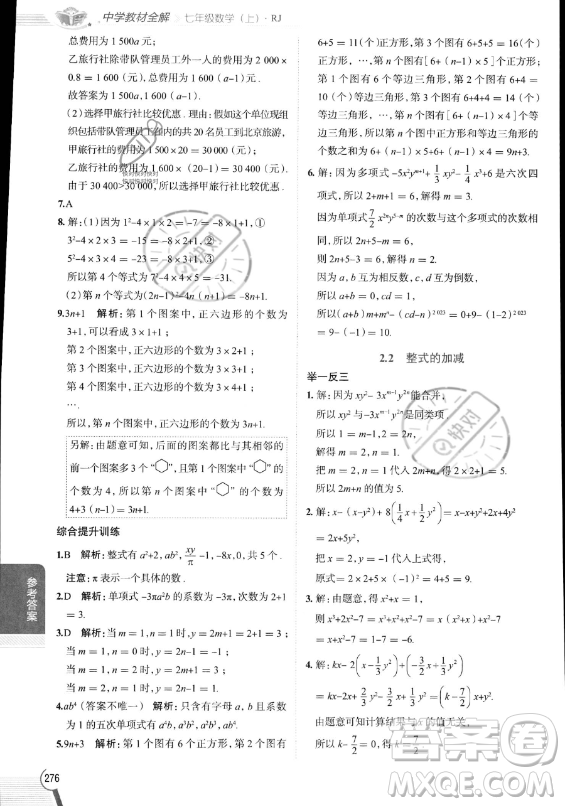 中学教材全解 七年级数学(上)·RJ
总费用为 1 500a ;
乙旅行社除带队管理员工外一人的费用为 2 000 ×
0.8 = 1 600(元), 总费用为 1 600(a-1).
故答案为 1 500a, 1 600(a-1).
(2)选择甲旅行社比较优惠. 理由:假如这个单位
组织包括带队管理员工的共 20 名员工到北京旅游,
甲旅行社的费用为 1 500×20 = 30 000(元);
乙旅行社的费用为 1 600×(20-1) = 30 400(元).
由于 30 400>30 000, 所以选择甲旅行社比较优惠.
7.A
8.解:(1)因为 1²-4×1×2 = -7 = -8×1+1,①
3²-4×2×3 = -15 = -8×2+1,②
5²-4×3×4 = -23 = -8×3+1,③
所以第 4 个等式为 7²-4×4×5 = -31.
(2)第 n 个等式为(2n-1)²-4n(n+1) = -8n+1.
9.3n+1 解析:第 1 个图案中,正六边形的个数为
3+1, 可以看成 3×1+1;
第 2 个图案中, 正六边形的个数为 3×2+1;
第 3 个图案中, 正六边形的个数为 3×3+1;
第 4 个图案中, 正六边形的个数为 3×4+1;
…
所以,第 n 个图案中,正六边形的个数为 3n+1.
另解:由题意可知,后面的图案都比与其相邻的
前一个图案多 3 个“⬡”, 第 1 个图案中“⬡”的个
数为 4, 所以第 n 个图案中“⬡”的个数为
4+3(n-1) = 3n+1.
综合提升训练
1.B 解析:整式有 a²+2, ab², xy/π -1, -8x, 0, 共 5 个.
注意:π 表示一个具体的数.
2.D 解析:单项式 -3πa²b 的系数为 -3π,次数为 2+1
= 3.
3.D 解析:当 m>n 时,次数为 m;
当 m=n 时,次数为 m 或 n;
当 m<n 时,次数为 n.
4.ab⁴ (答案不唯一) 解析:只含有字母 a, b, 且系数
为 1 的五次单项式有 a⁴b, a³b², a²b³, ab⁴.
5.9n+3 解析:第 1 个图有 6 个正方形,第 2 个图有
参考答案
276
6+5 = 11(个)正方形,第 3 个图有 6+5×2 = 16(个)
正方形, 第 n 个图有 6+5(n-1) = 5n+1(个)正方形;
第 1 个图有 6 个等边三角形,第 2 个图有 6+4 =
10(个)等边三角形,第 3 个图有 6+4×2 = 14(个)等
边三角形,所以第 n 个图中正方形和等边三角形的
个数之和为 6+(n-1)×5+6+(n-1)×4 = 9n+3.
6.解:因为多项式 -5x²yᵐ⁺¹+ 1/3 xy²- 1/4 x³+6 是六次四
项式,所以 2+m+1 = 6, 所以 m = 3.
因为单项式 7/2 x²ⁿy⁵⁻ᵐ 的次数与这个多项式的次数相
同, 所以 2n+5-m = 6,
即 2n+5-3 = 6, 所以 n = 2.
因为 a, b 互为相反数, c, d 互为倒数,
所以 a+b = 0, cd = 1.
所以(a+b)m+mⁿ-(cd-n)²⁰²³ = 0+9-(1-2)²⁰²³ =
0+9-(-1) = 10.
2.2 整式的加减
举一反三
1.解:因为 xy²-3xᵐ⁻¹y²ⁿ能合并,
所以 xy²与-3xᵐ⁻¹y²ⁿ是同类项,
所以 m-1 = 1, 2n = 2,
解得 m = 2, n = 1.
把 m = 2, n = 1 代入 2m+n, 得 2m+n = 2×2+1 = 5,
所以 2m+n 的值为 5.
2.解:x-(x-y²)+8(1/4 x+ 1/2 y²) = x-x+y²+2x+4y²
= 2x+5y².
把 x = -1, y = 2 代入上式, 得
原式 = 2×(-1)+5×2² = 18.
3.解:由题意, 得 m-2 = 0, 解得 m = 2.
所以 x³+2x²-7x+17 = x³+x²+x²+x-8x-8+25 = 0+0-0+
25 = 25.
4.解:kx-2(x- 1/3 y²)+(- 3/2 x+ 1/3 y²)
= kx-2x+ 2/3 y²- 3/2 x+ 1/3 y²=(k- 7/2)x+y².
由题意可知计算结果与 x 的值无关,
所以 k- 7/2 = 0, 解得 k = 7/2.
快对
快对
答案圈